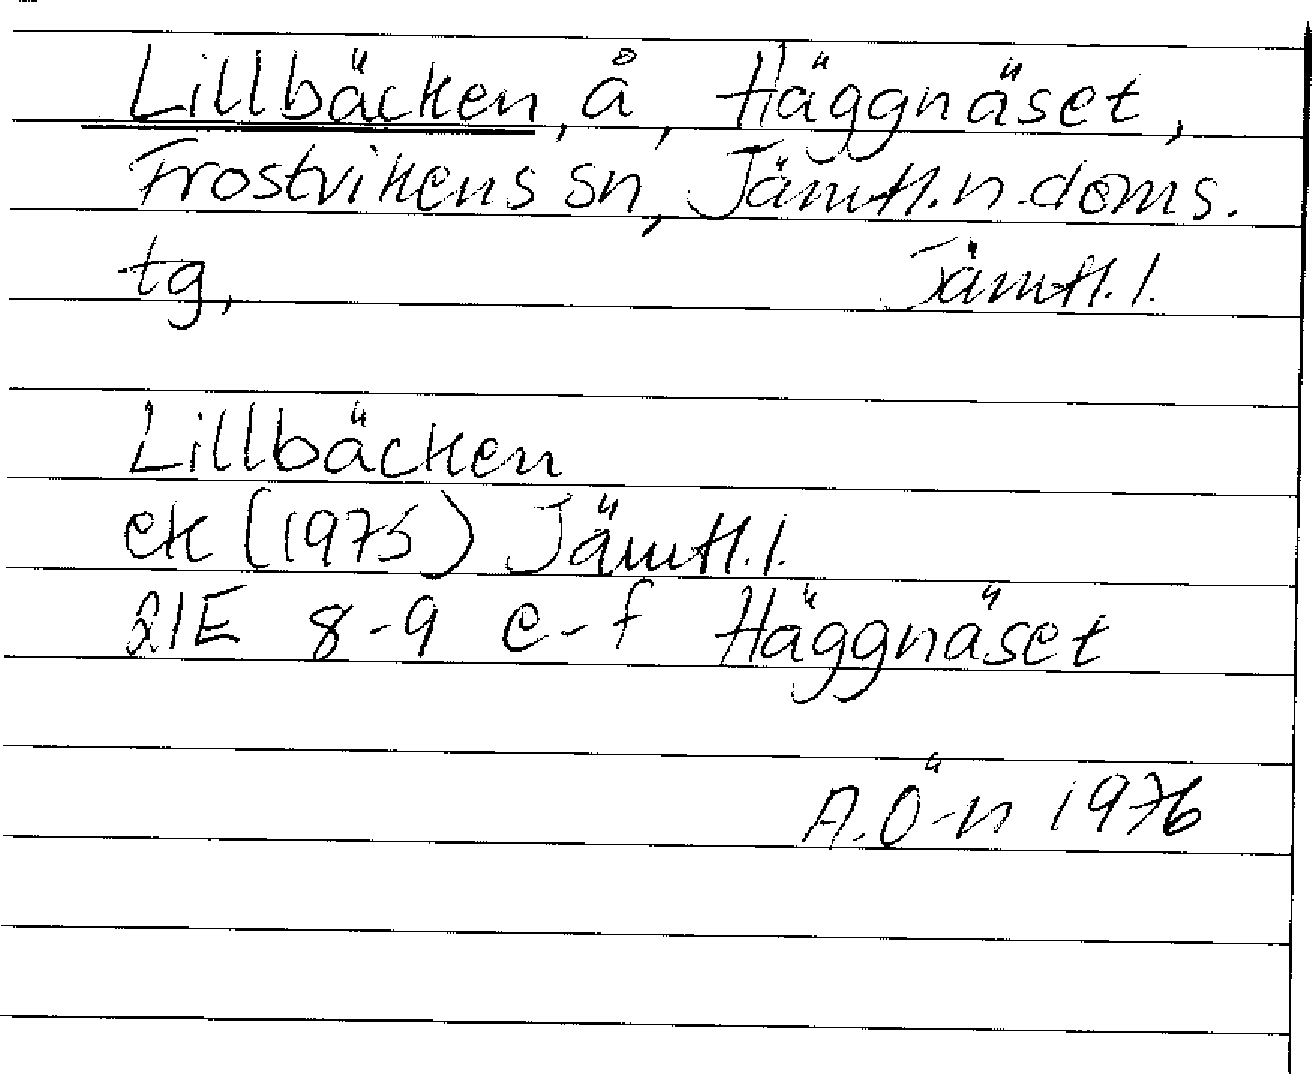 Lillbäcken, å, Häggnäset,
Frostvikens sn, Jämtl.n.doms.
tg, Jämtl.l.
Lillbäcken
ek (1975) Jämtl.l.
21E 8-9 e-f Häggnäset
A.Ö-n 1976